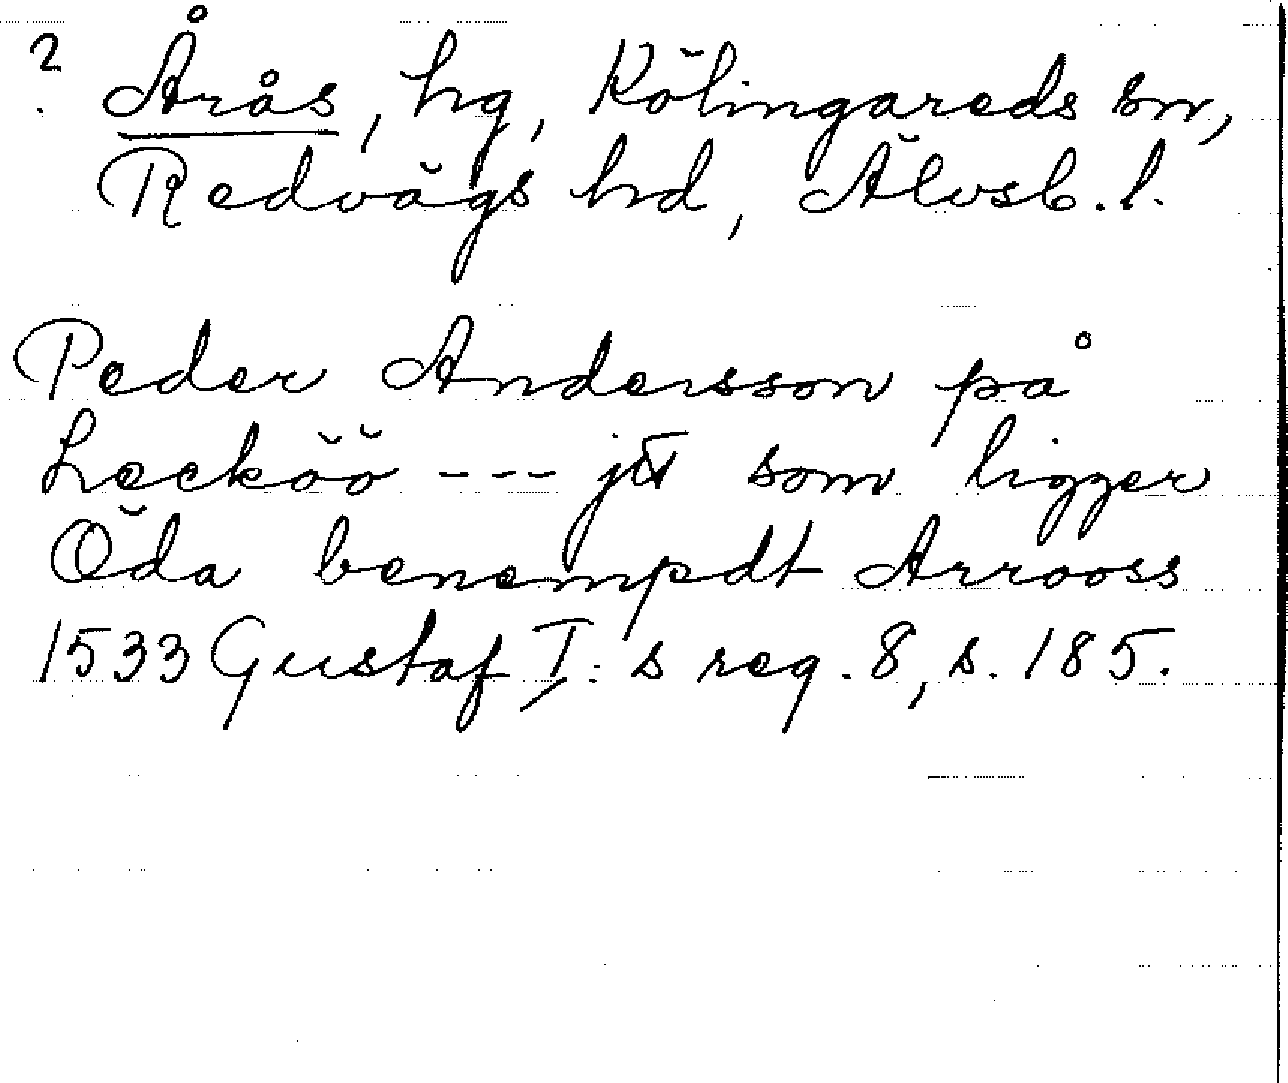 ? Årås, hg, Kölingareds sn,
Redvägs hd, Älvsb. l.
Peder Andersson på
Lecköö --- jtt som ligger
Öda benempdt Arrooss
1533 Gustaf I:s reg. 8, s. 185.